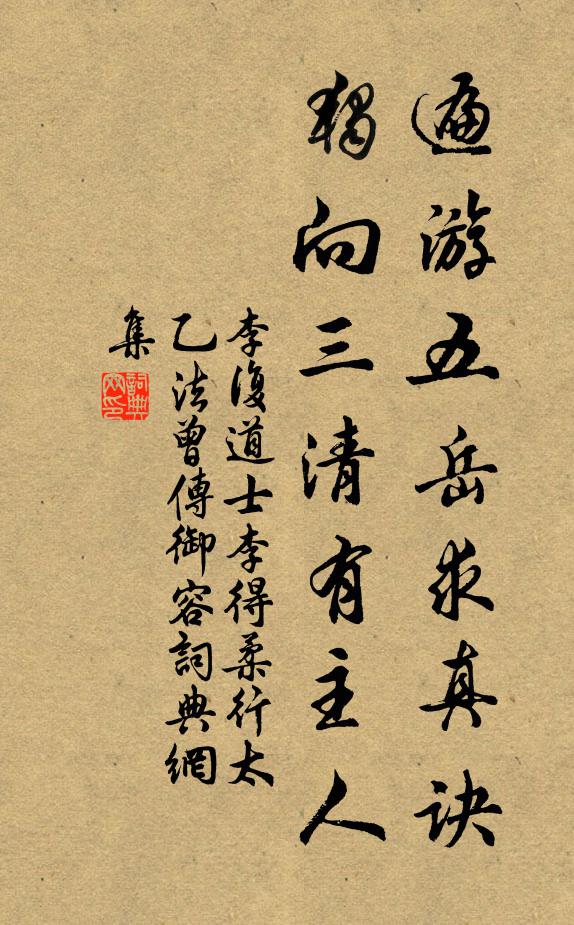 遍游五岳求真诀
獨向三清有主人
李復道士李得柔行太
乙法曾傳御容詞典網
集
詞典
网印